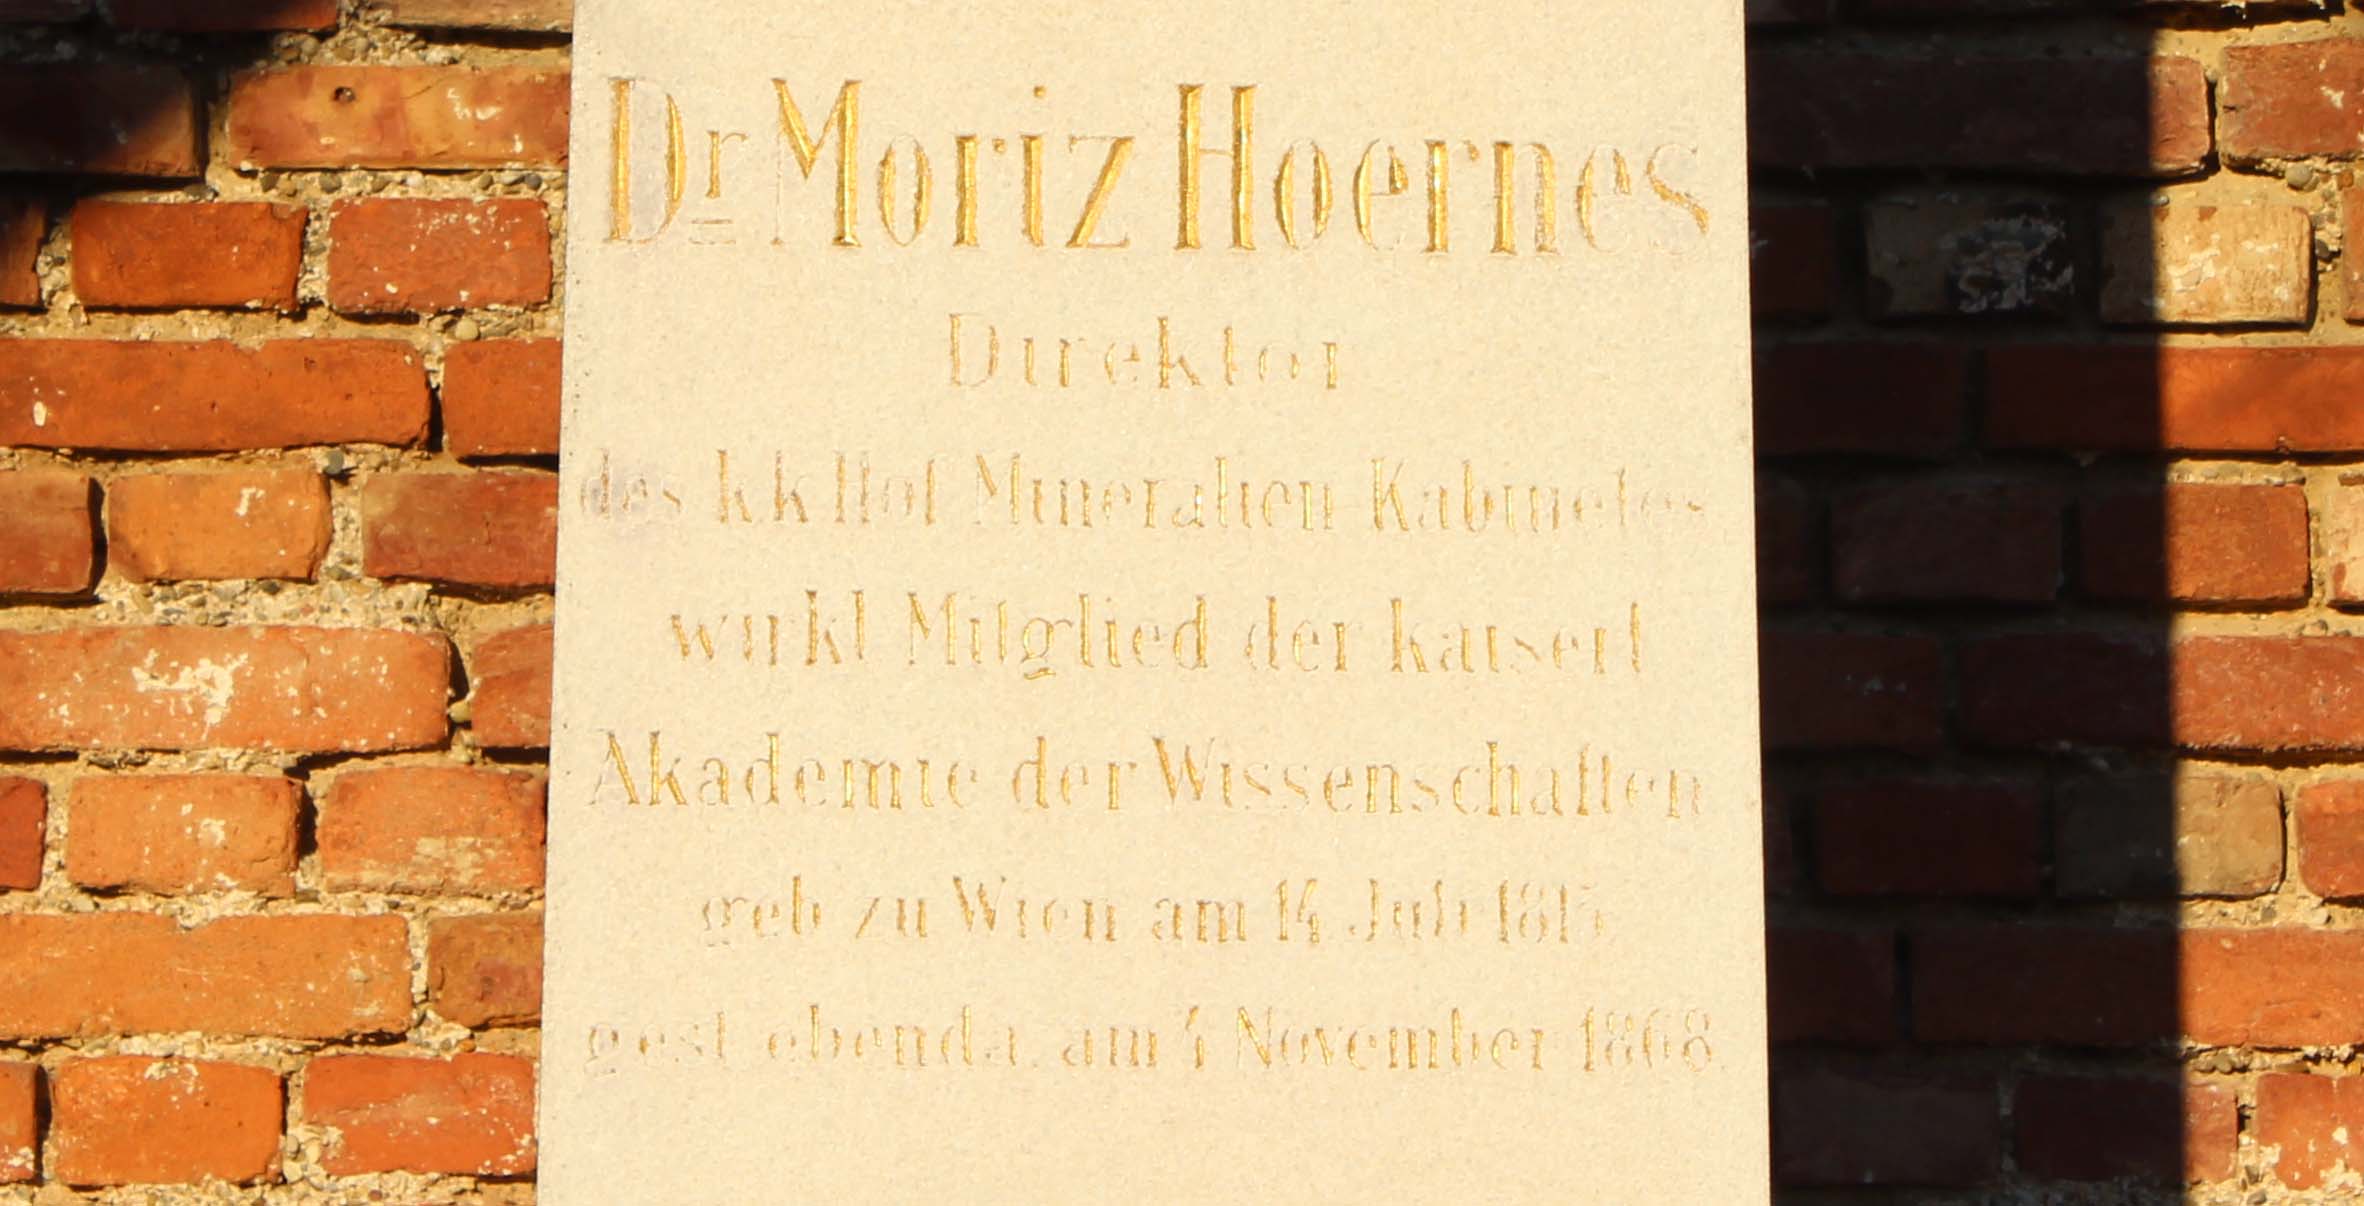 Dr Moriz Hoernes
Direktor
des k k Hof Mineralien-Kabinetes
wirkl Mitglied der kaiserl
Akademie der Wissenschaften
geb zu Wien am 14 Juli 1815
gest ebenda am 4 November 1868.